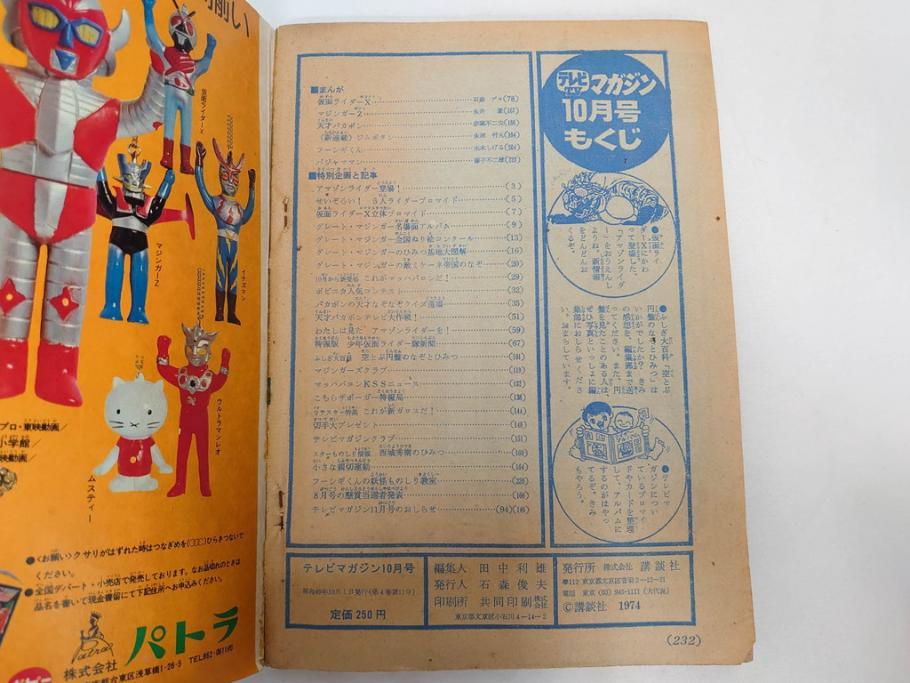 前い
仮面ライダーX
マジンガーZ
イナズマン
ウルトラマンレオ
ムスティー
プロ・東映動画／
小学館／
映動画／
●〈お願い〉クサリがはずれた時はつなぎめを
ください。
●全国デパート・小売店で発売しております。なお品切れのときは
品名を書いて現金書留にて下記住所へお申込みください。
株式会社 パトラ
東京都台東区浅草橋1-26-5
テレビマガジン
10月号
もくじ
■まんが
仮面ライダーX (78)
マジンガーZ
天才バカボン
〈新連載〉ジムボタン
フーシギくん
パジャママン
■特別企画と記事
アマゾンライダー登場！ (3)
せいぞろい！ 5人ライダーブロマイド (5)
仮面ライダーX立体ブロマイド (7)
グレート・マジンガー名場面アルバム (9)
グレート・マジンガー全国ぬり絵コンクール (13)
グレート・マジンガーのひみつ基地大図解 (16)
グレート・マジンガーの敵ミケーネ帝国のなぞ (20)
これがマッハバロンだ！ (29)
ポピニカ人気コンテスト (32)
バカボンの天才なぞなぞクイズ道場 (35)
天才バカボンテレビ大作戦！ (51)
わたしは見た アマゾンライダーを！ (59)
特報版 少年仮面ライダー隊新聞 (67)
ふしぎ大百科 空とぶ円盤のなぞとひみつ
マガジャーズクラブ
マッハバロンKSSニュース
こちらデボーガー特報局
これが新ガロスだ！
切手大プレゼント
テレビマガジンクラブ
西城秀樹のひみつ
小さな親切運動
フーシギくんの妖怪ものしり教室
8月号の懸賞当選者発表
テレビマガジン11月号のおしらせ (94)
●仮面ライ
ダーXにかわ
って登場した、
「アマゾンライダ
ー」をおうえんし
ようね。新情報
をどんどんお
くるぞ。
●ふしぎ大百科「空とぶ
円盤のなぞとひみつ」は
いかがでしたか？ きみ
の感想を、編集部まで送
ってください。また、円
盤を見たことのある人は、
ぜひ写真といっしょに編
集部におしらせくださ
い。おまちしています。
●テレビマ
ガジンについ
ているブロマイ
ドやカードを整理
して、アルバムに
するのがはやっ
てるぞ。きみ
もやろう。
テレビマガジン10月号
定価 250円
編集人 田中利雄
発行人 石森俊夫
印刷所 共同印刷株式会社
東京都文京区小石川4-14-2
発行所 株式会社 講談社
©講談社 1974
(232)